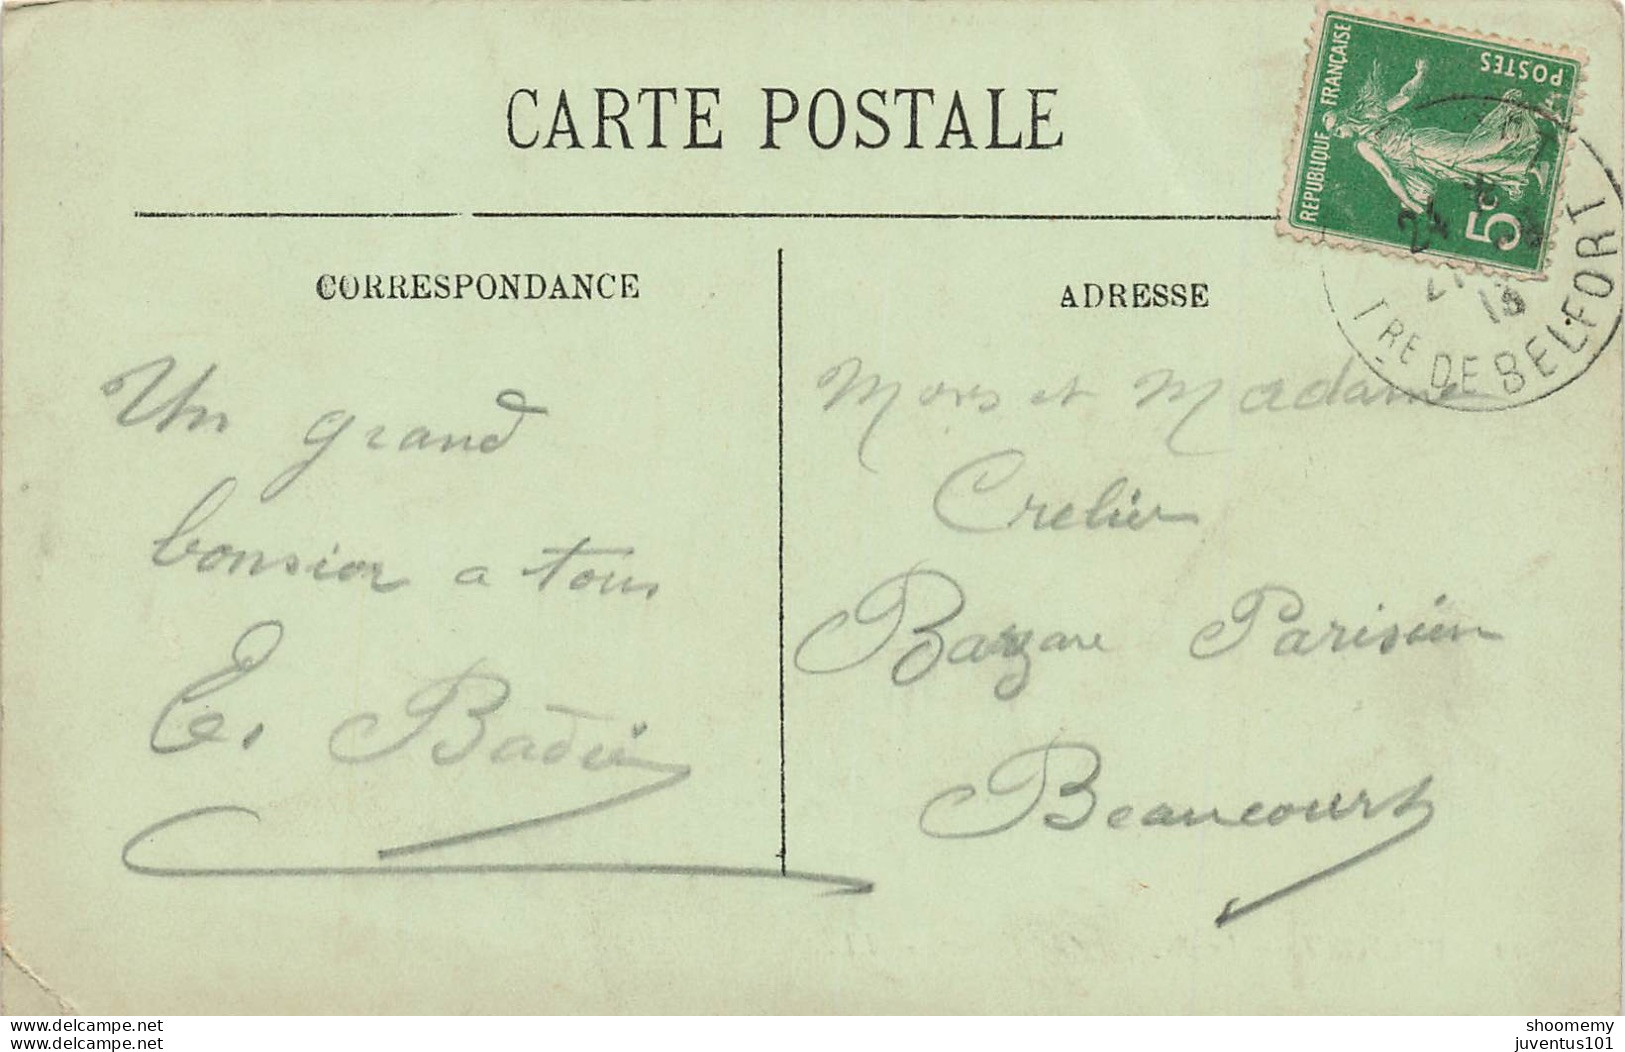 CARTE POSTALE
RÉPUBLIQUE FRANÇAISE
POSTES
5c
TRE DE BELFORT
CORRESPONDANCE
Un grand
bonsior a tous
E.
ADRESSE
Mors et Madame
Crelier
Bazare Parisien
Beaucourt
www.delcampe.net
www.delcampe.net
shoomemy
juventus101